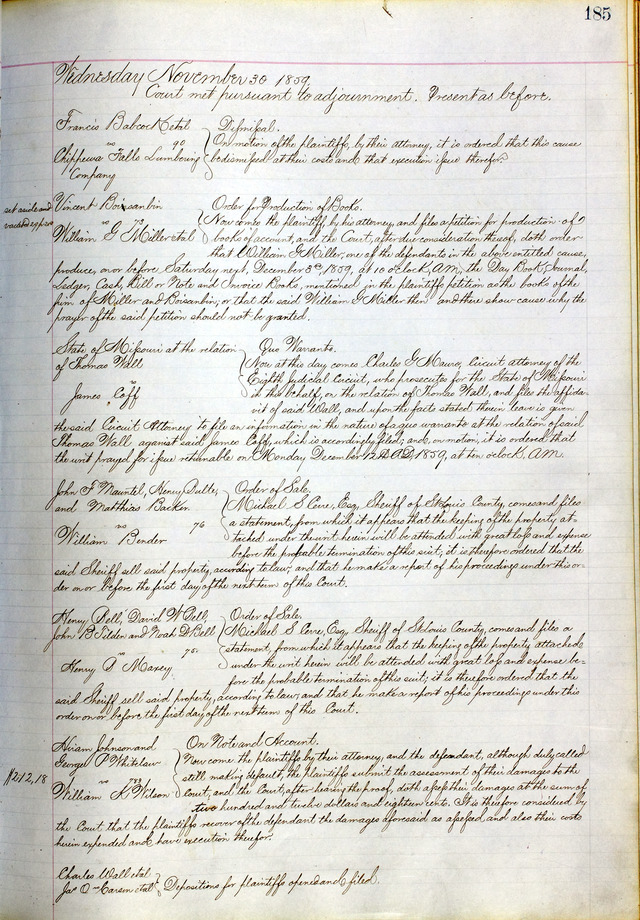 185
Wednesday November 30 1859,
Court met pursuant to adjournment. Present as before.
Francis Babcock et al
Dismissal.
vs 90
Chippewa Falls Lumbering
Company
On motion of the plaintiffs, by their attorney, it is ordered that this cause
be dismissed at their costs and that execution issue therefor.
set aside and
Vincent Boisaubin
Order for Production of Books.
vs 73
William G Miller et al
Now comes the plaintiff, by his attorney, and files a petition for production of
books of account, and the Court, after due consideration thereof, doth order
that William G Miller, one of the defendants in the above entitled cause,
produce, on or before Saturday next, December 3rd, 1859, at 10 o'clock, A.M, the Day Book, Journal,
Ledger, Cash, Bill or Note and Invoice Books, mentioned in the plaintiffs petition as the books of the
firm of Miller and Boisaubin; or that the said William G Miller then and there show cause why the
prayer of the said petition should not be granted.
State of Missouri at the relation
of Thomas Wall
vs
James Coff
Quo Warranto.
Now at this day comes Charles G Mauro, Circuit attorney of the
Eighth Judicial Circuit, who prosecutes for the State of Missouri
in this behalf, on the relation of Thomas Wall, and files the affida-
vit of said Wall, and upon the facts stated therein leave is given
the said Circuit Attorney to file an information in the nature of a quo warranto at the relation of said
Thomas Wall against said James Coff, which is accordingly filed; and, on motion, it is ordered that
the writ prayed for issue returnable on Monday December 12th A.D, 1859, at ten o'clock, A.M.
John F Mauntel, Henry Bulte,
and Matthias Backer
vs 76
William Bender
Order of Sale.
Michael S Cerre, Esq, Sheriff of St Louis County, comes and files
a statement, from which it appears that the keeping of the property at-
tached under the writ herein will be attended with great loss and expense
before the probable termination of this suit; it is therefore ordered that the
said Sheriff sell said property, according to law, and that he make a report of his proceedings under this or-
der on or before the first day of the next term of this Court.
Henry Bell, David W Bell,
John B Tilden and Noah D Bell
vs 75
Henry A Maxey
Order of Sale.
Michael S Cerre, Esq, Sheriff of St Louis County, comes and files a
statement, from which it appears that the keeping of the property attached
under the writ herein will be attended with great loss and expense be-
fore the probable termination of this suit; it is therefore ordered that the
said Sheriff sell said property, according to law; and that he make a report of his proceedings under this
order on or before the first day of the next term of this Court.
Hiram Johnson and
George P Whitelaw
vs
William K Wilson
$212,18
On Note and Account.
Now come the plaintiffs by their attorney, and the defendant, although duly called
still making default, the plaintiffs submit the assessment of their damages to the
Court, and the Court, after hearing the proof, doth assess their damages at the sum of
two hundred and twelve dollars and eighteen cents. It is therefore considered by
the Court that the plaintiffs recover of the defendant the damages aforesaid as assessed, and also their costs
herein expended and have execution therefor.
Charles Wall et al
Jas O Carson et al
Depositions for plaintiffs opened and filed.